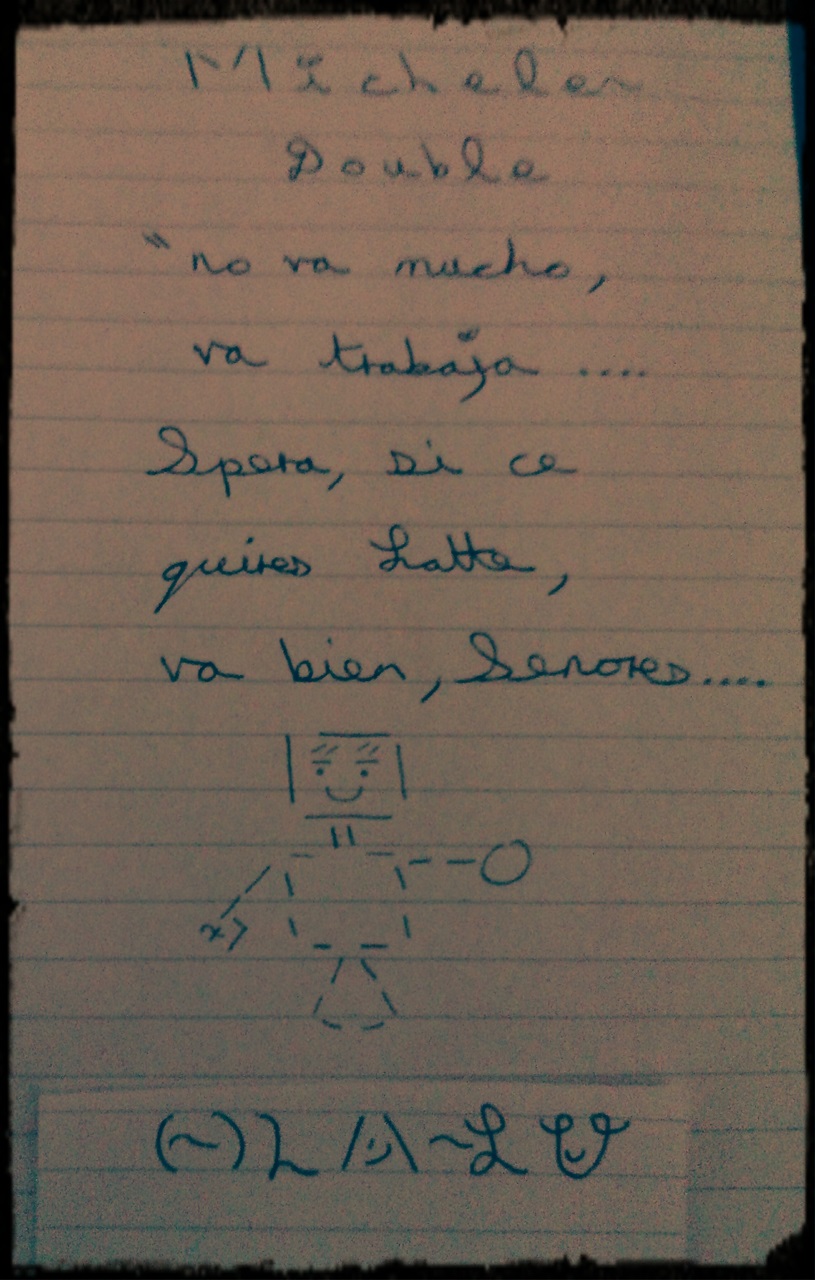 Micheler
Double
"no va mucho,
va trabaja ....
Spera, si ce
quires Latte,
va bien, Senores....